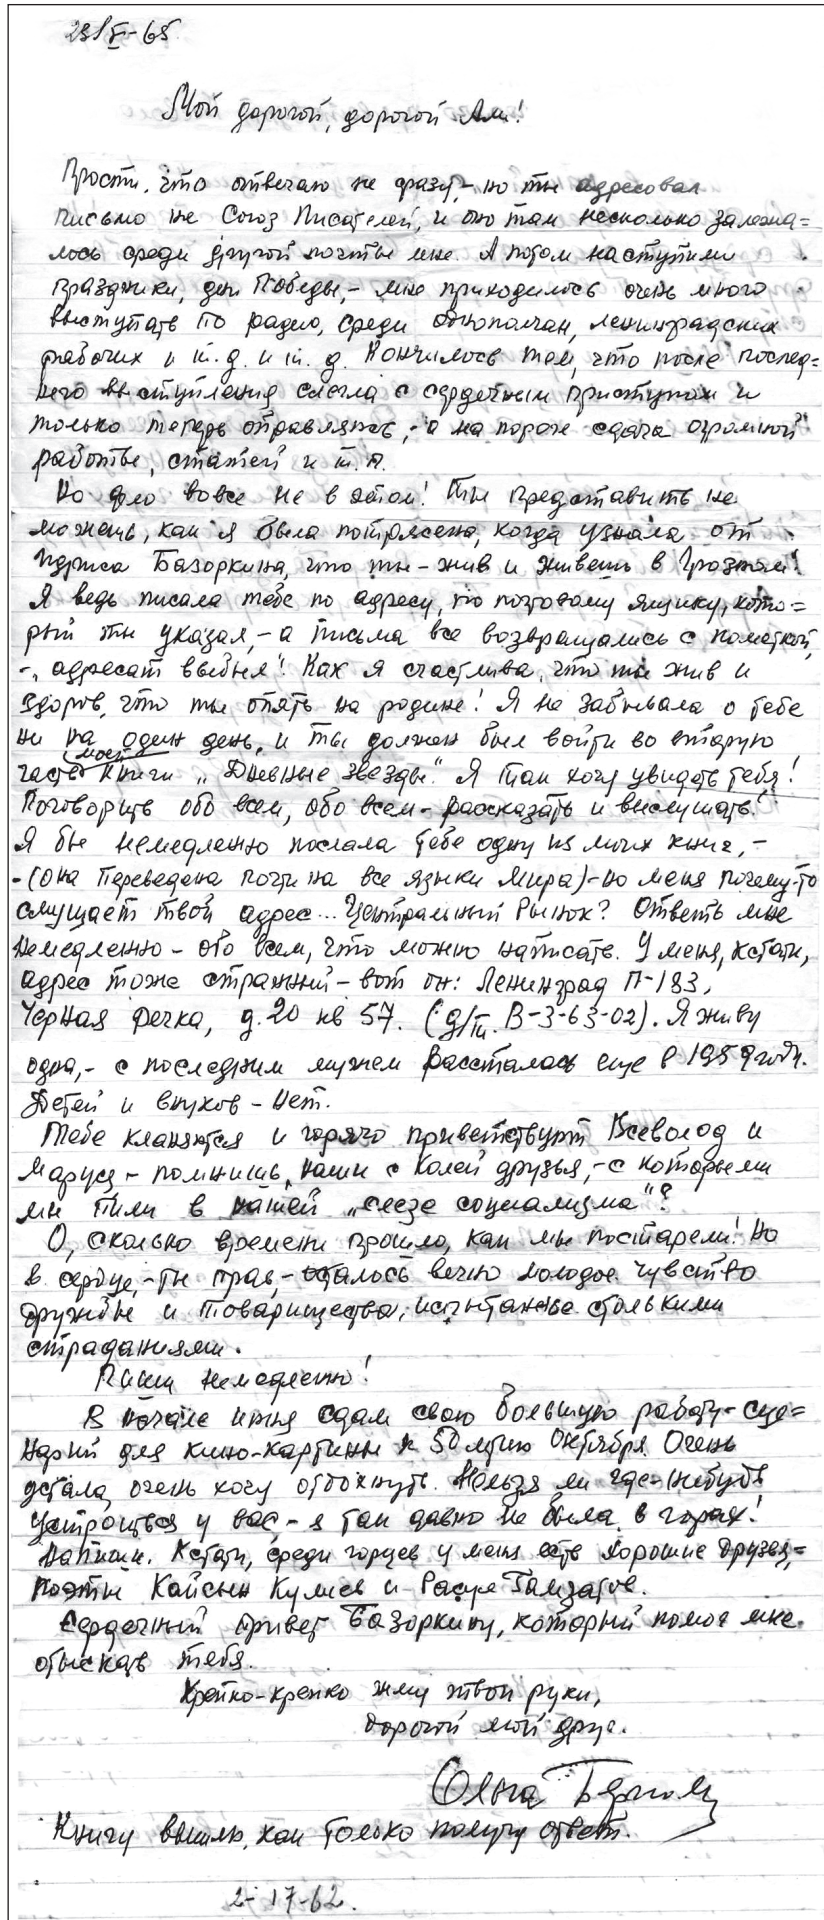 23/V-65.
Мой дорогой, дорогой Али!
Прости, что отвечаю не сразу,- но ты адресовал
письмо на Союз Писателей, и оно там несколько залежа=
лось среди другой почты мне. А потом наступили
праздники, дни Победы,- мне приходилось очень много
выступать по радио, среди однополчан, ленинградских
рабочих и т.д. и т.д. Кончилось тем, что после послед=
него выступления слегла с сердечным приступом и
только теперь оправляюсь,- а на пороге сдача огромной
работы, статей и т.п.
Но дело вовсе не в этом! Ты представить не
можешь, как я была потрясена, когда узнала от
Идриса Базоркина, что ты - жив и живешь в Грозном!
Я ведь писала тебе по адресу, по почтовому ящику, кото=
рый ты указал,- а письма все возвращались с пометкой,
-„адресат выбыл"! Как я счастлива, что ты жив и
здоров, что ты опять на родине! Я не забывала о тебе
ни на один день, и ты должен был войти во вторую
часть моей книги „Дневные звезды". Я так хочу увидеть тебя!
Поговорить обо всем, обо всем - рассказать и выслушать!
Я бы немедленно послала тебе одну из моих книг,-
-(она переведена почти на все языки мира)-но меня почему-то
смущает твой адрес... Центральный Рынок? Ответь мне
немедленно - обо всем, что можно написать. У меня, кстати,
адрес тоже странный - вот он: Ленинград П-183,
Черная речка, д.20 кв 57. (д/т. В-3-63-02). Я живу
одна,- с последним мужем рассталась еще в 1959 году.
Детей и внуков - нет.
Тебе кланяются и горячо приветствуют Всеволод и
Маруся - помнишь, наши с Колей друзья,- с которыми
мы пили в нашей „слезе социализма"?
О, сколько времени прошло, как мы постарели! Но
в сердце,- ты прав,- осталось вечно молодое чувство
дружбы и товарищества, испытанное столькими
страданиями.
Пиши немедленно!
В начале июня сдам свою большую работу - сце=
нарий для кино-картины к 50 летию Октября. Очень
устала, очень хочу отдохнуть. Нельзя ли где-нибудь
устроиться у вас,- я так давно не была в горах!
Напиши. Кстати, среди горцев у меня есть хорошие друзья,=
поэты Кайсын Кулиев и Расул Гамзатов.
Сердечный привет Базоркину, который помог мне
отыскать тебя.
Крепко-крепко жму твои руки,
дорогой мой друг.
Ольга Берггольц
Книгу вышлю, как только получу ответ.
2-17-62.